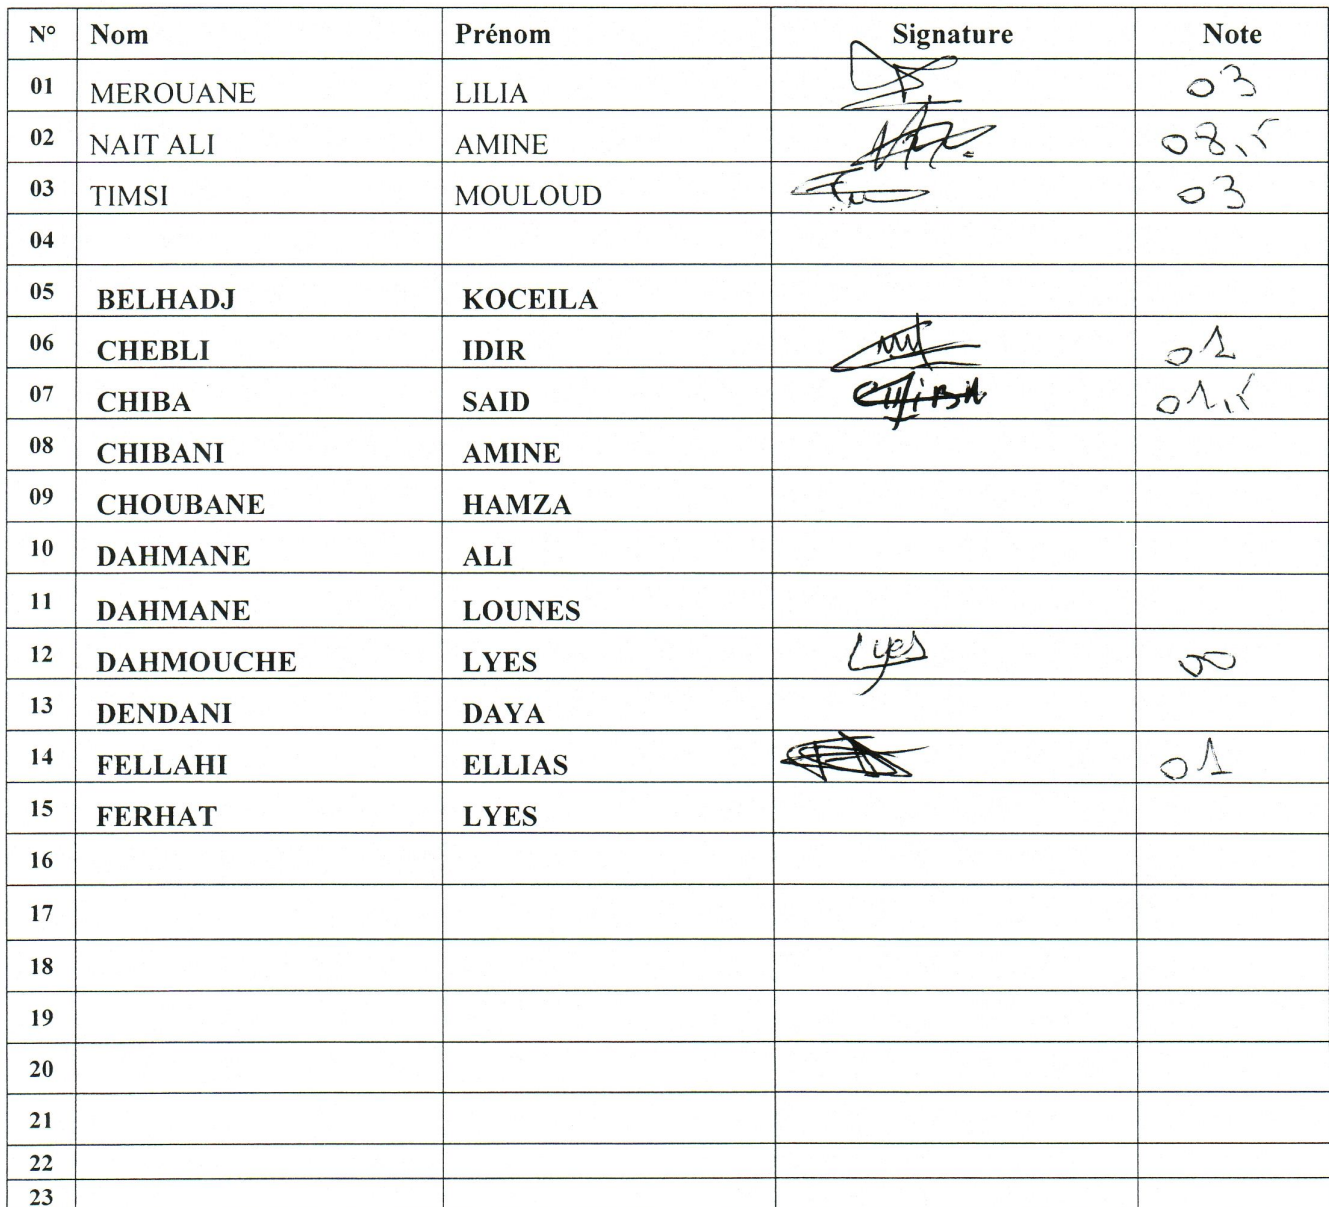 N° Nom Prénom Signature Note
01 MEROUANE LILIA 03
02 NAIT ALI AMINE 08,5
03 TIMSI MOULOUD 03
04
05 BELHADJ KOCEILA
06 CHEBLI IDIR 01
07 CHIBA SAID CHIBA 01,5
08 CHIBANI AMINE
09 CHOUBANE HAMZA
10 DAHMANE ALI
11 DAHMANE LOUNES
12 DAHMOUCHE LYES Lyes 00
13 DENDANI DAYA
14 FELLAHI ELLIAS 01
15 FERHAT LYES
16
17
18
19
20
21
22
23